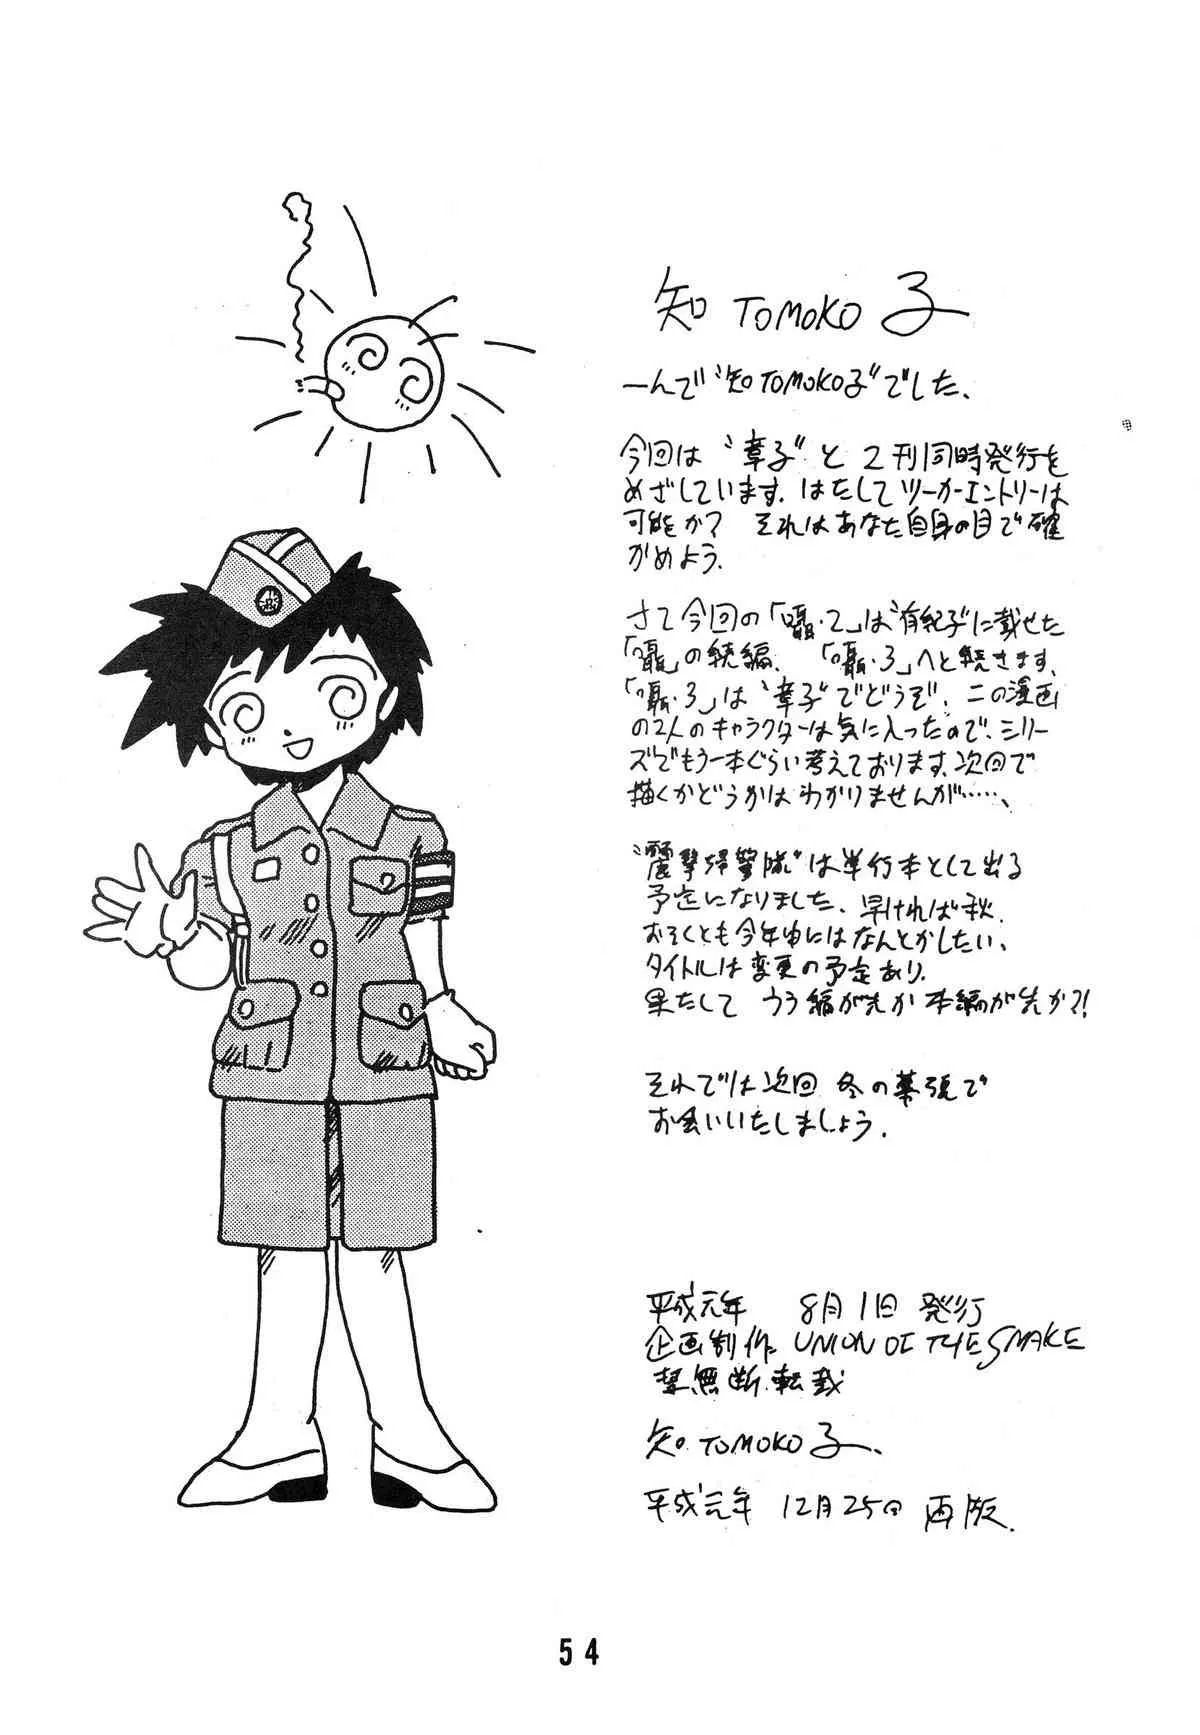 知 TOMOKO 子
一んで〝知TOMOKO子〟でした、
今回は〝幸子〟と2刊同時発行を
めざしています。はたしてツーカーエントリーは
可能か? それはあなた自身の目で確
かめよう。
さて今回の「囁・2」は〝有紀子〟に載せた
「囁」の続編、「囁・3」へと続きます。
「囁・3」は〝幸子〟でどうぞ、この漫画
の2人のキャラクターは気に入ったので、シリー
ズでもう一本ぐらい考えております。次回で
描くかどうかはわかりませんが……、
隊〟は単行本として出る
予定になりました、早ければ秋、
おそくとも今年中にはなんとかしたい、
タイトルは変更の予定あり、
果たして うら編が先か 本編が先か?!
それでは次回 冬の幕張で
お会いいたしましょう。
平成元年 8月1日 発行
企画制作 UNION OF THE SNAKE
禁無断転載
知 TOMOKO 子
平成元年 12月25日 再版
54